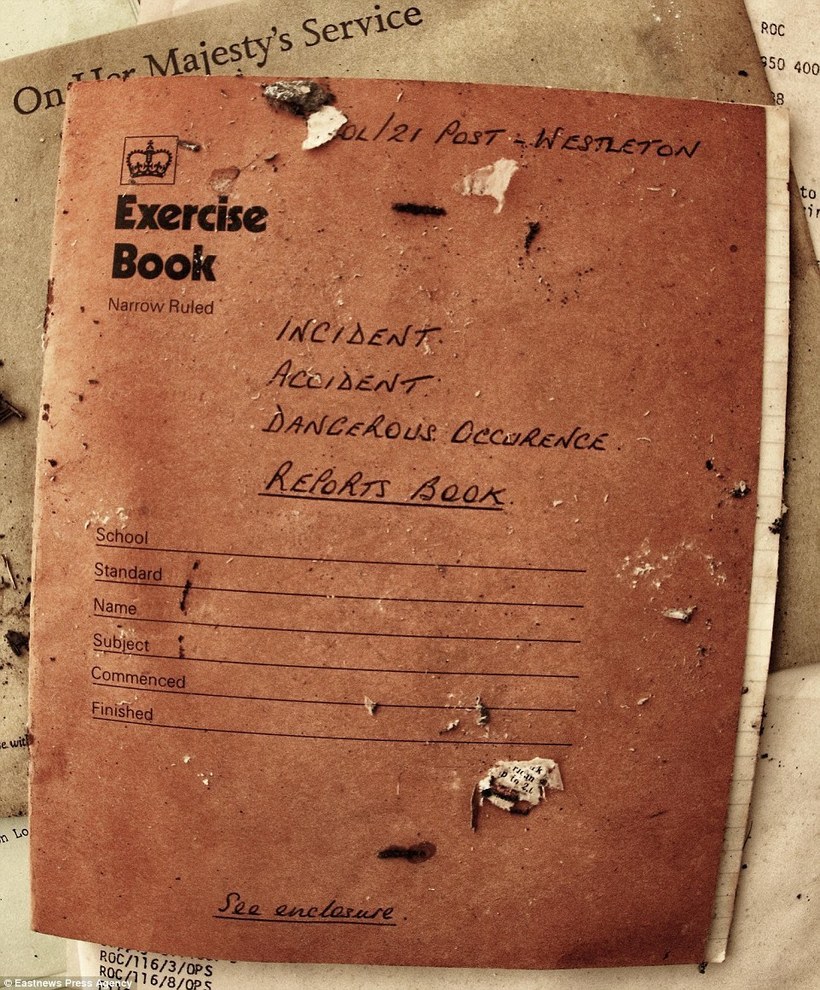 On Her Majesty's Service
ROC
950 400
to
OL/21 POST - WESTLETON
Exercise
Book
Narrow Ruled
INCIDENT.
ACCIDENT
DANGEROUS OCCURENCE.
REPORTS BOOK.
School
Standard
Name
Subject
Commenced
Finished
See enclosure.
ROC/116/3/OPS
ROC/116/8/OPS
© Eastnews Press Agency